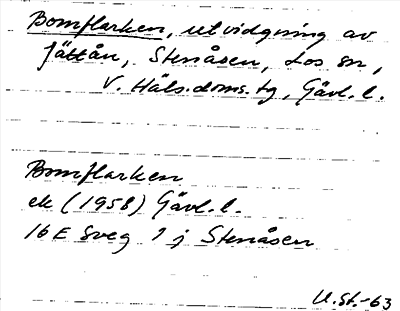 Bomflarken, utvidgning av
Jättån, Stenåsen, Los sn,
V. Häls. doms. tg, Gävl. l.
Bomflarken
ek (1958) Gävl. l.
16 E Sveg 1 j Stenåsen
U. St.-63